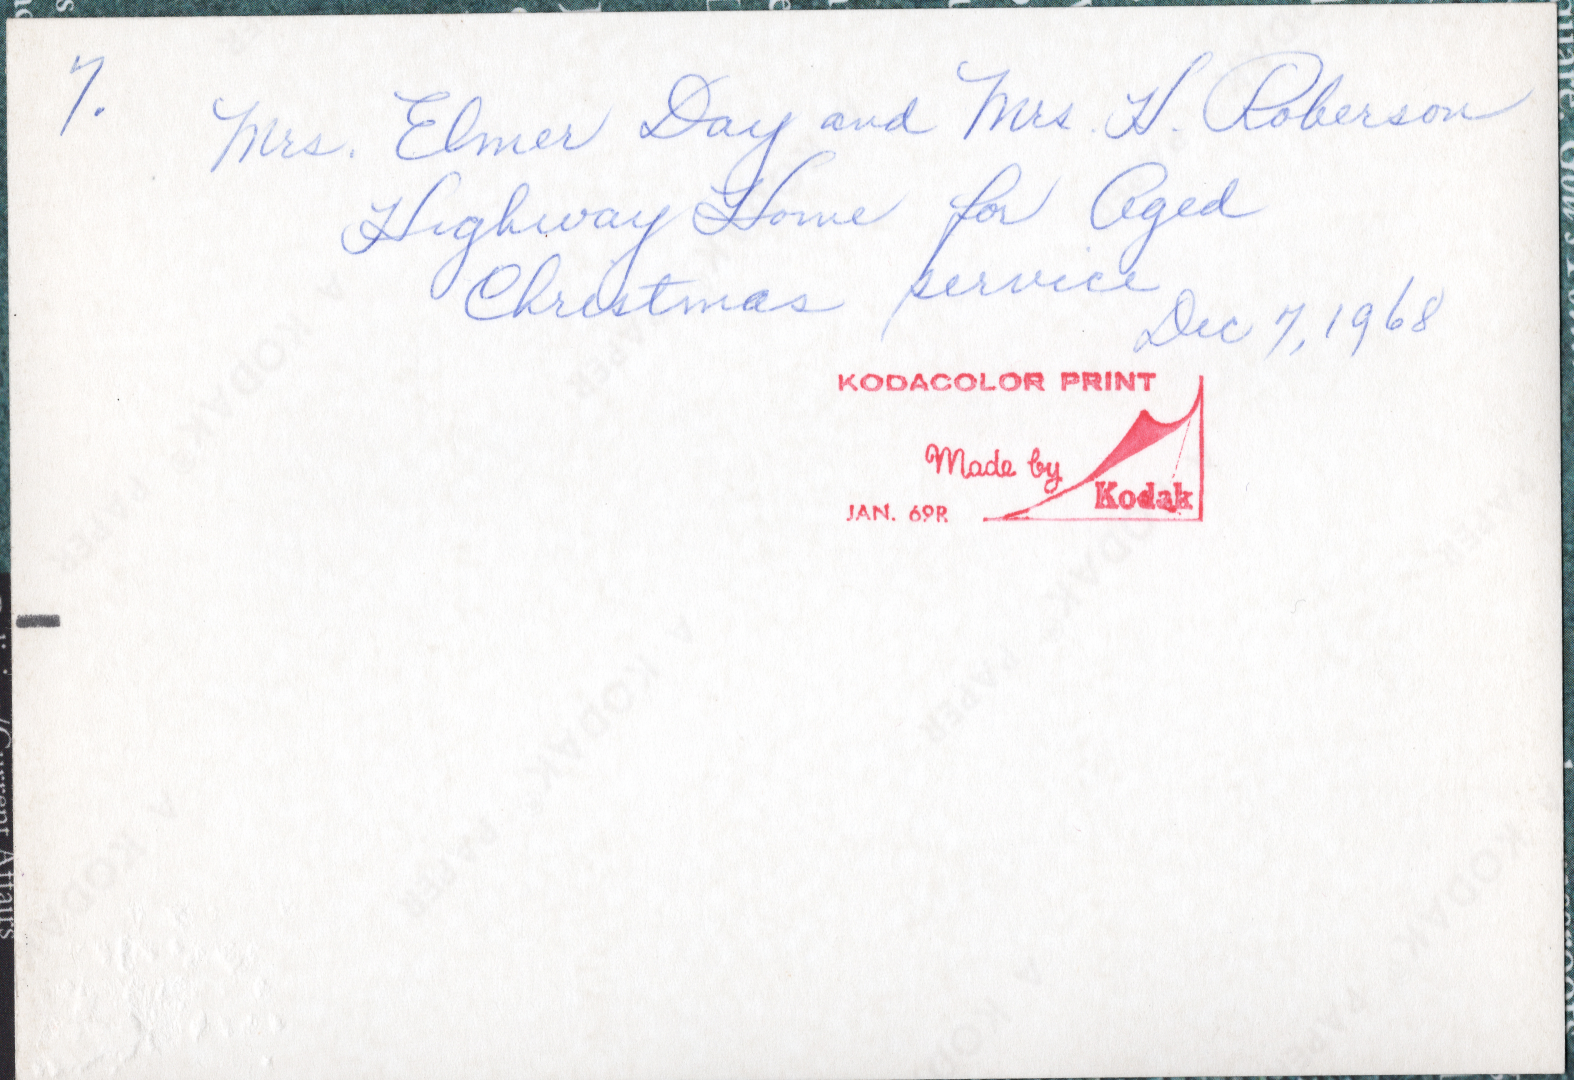 7.
Mrs. Elmer Day and Mrs. H. Roberson
Highway Home for Aged
Christmas service
Dec 7, 1968
KODACOLOR PRINT
Made by
Kodak
JAN. 69R
A KODAK PAPER
A KODAK PAPER
A KODAK
(Current Affairs